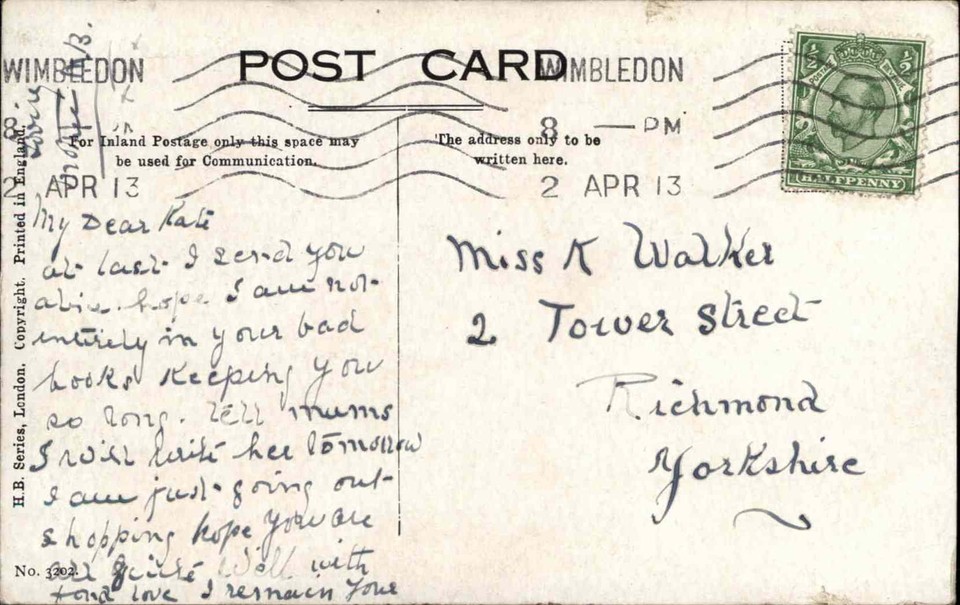 POST CARD
WIMBLEDON
8 PM
2 APR 13
WIMBLEDON
8 — PM
2 APR 13
For Inland Postage only this space may
be used for Communication.
The address only to be
written here.
½ ½
POSTAGE
HALFPENNY
My Dear Kate
at last I send you
a hope I am not
entirely in your bad
books keeping you
so long. Tell mums
I will write her tomorrow
I am just going out
shopping hope you are
all quite well with
fond love I remain your
loving
Miss K Walker
2 Tower Street
Richmond
Yorkshire
H.B. Series, London. Copyright. Printed in England.
No. 3202.